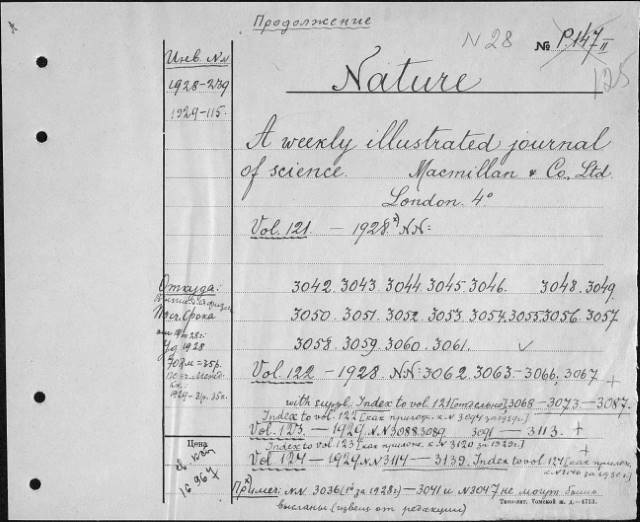 Продолжение
N 28 № P.147 II
125
Инв. NN
1928-239
1929-115.
Nature
A weekly illustrated journal
of science. Macmillan & Co., Ltd.
London. 4°
Vol. 121. — 1928.*) NN:
Откуда:
3042. 3043. 3044. 3045. 3046. 3048. 3049.
3050. 3051. 3052. 3053. 3054. 3055. 3056. 3057
3058. 3059. 3060. 3061. ✓
Vol. 122 — 1928 NN: 3062, 3063 — 3066, 3067 +
with suppl. Index to vol. 121 [отдельно], 3068 — 3073 — 3087.
Index to vol. 122 [как прилож. к N 3094 за 1929 г.]
Vol. 123. — 1929. NN 3088, 3089. 3091 — 3113. +
Index to vol 123 [как прилож. к N 3120 за 1929 г.]
Vol 124 — 1929 NN 3114 — 3139. Index to vol. 124 [как прилож.
Цена
16 967
Примеч: NN. 3036 (1й за 1928 г) — 3041 и N 3047 не могут быть
высланы (извещ. от редакции)
Типо-лит. Томской ж. д.—4753.